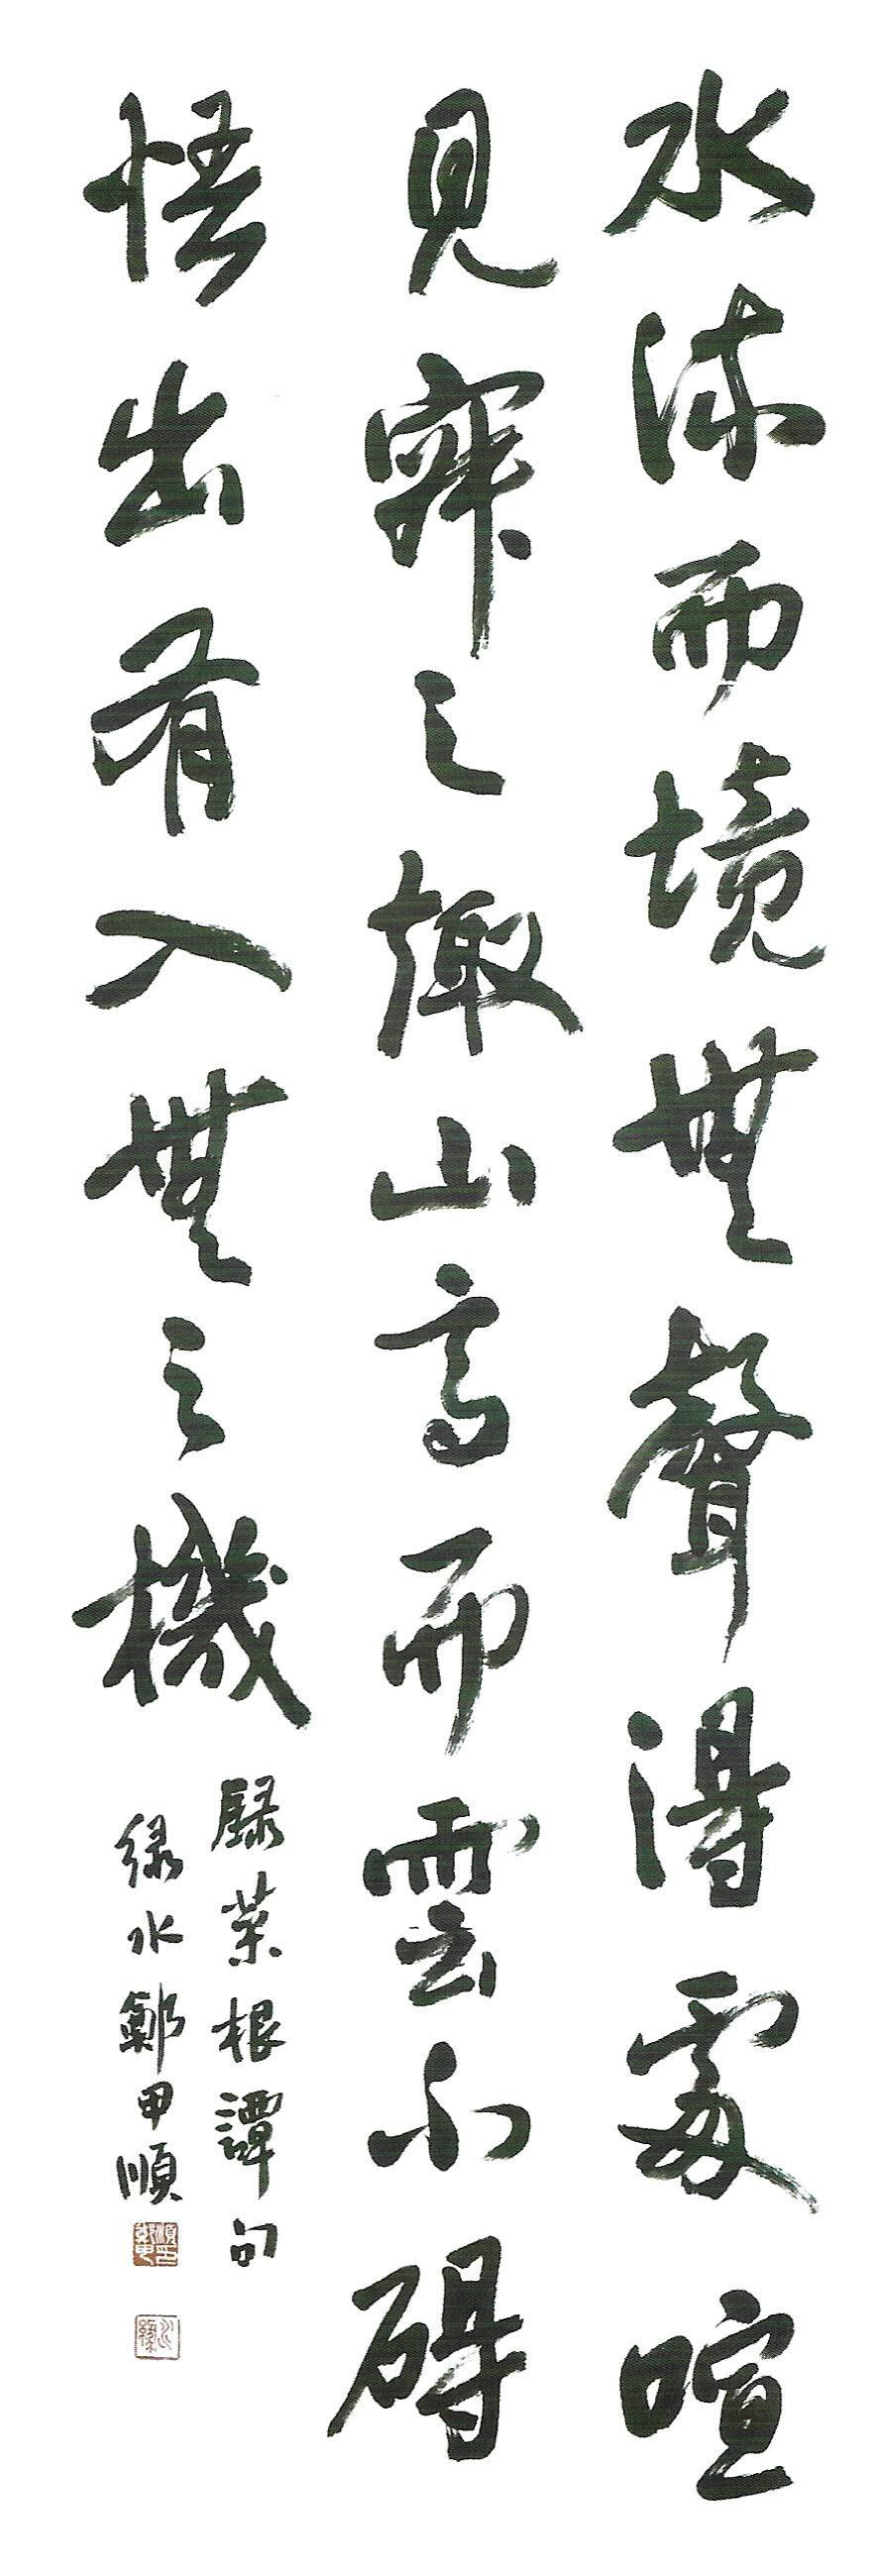 水流而境無聲得處喧
見寂之趣山高而雲不碍
悟出有入無之機
錄菜根譚句
綠水鄭甲順